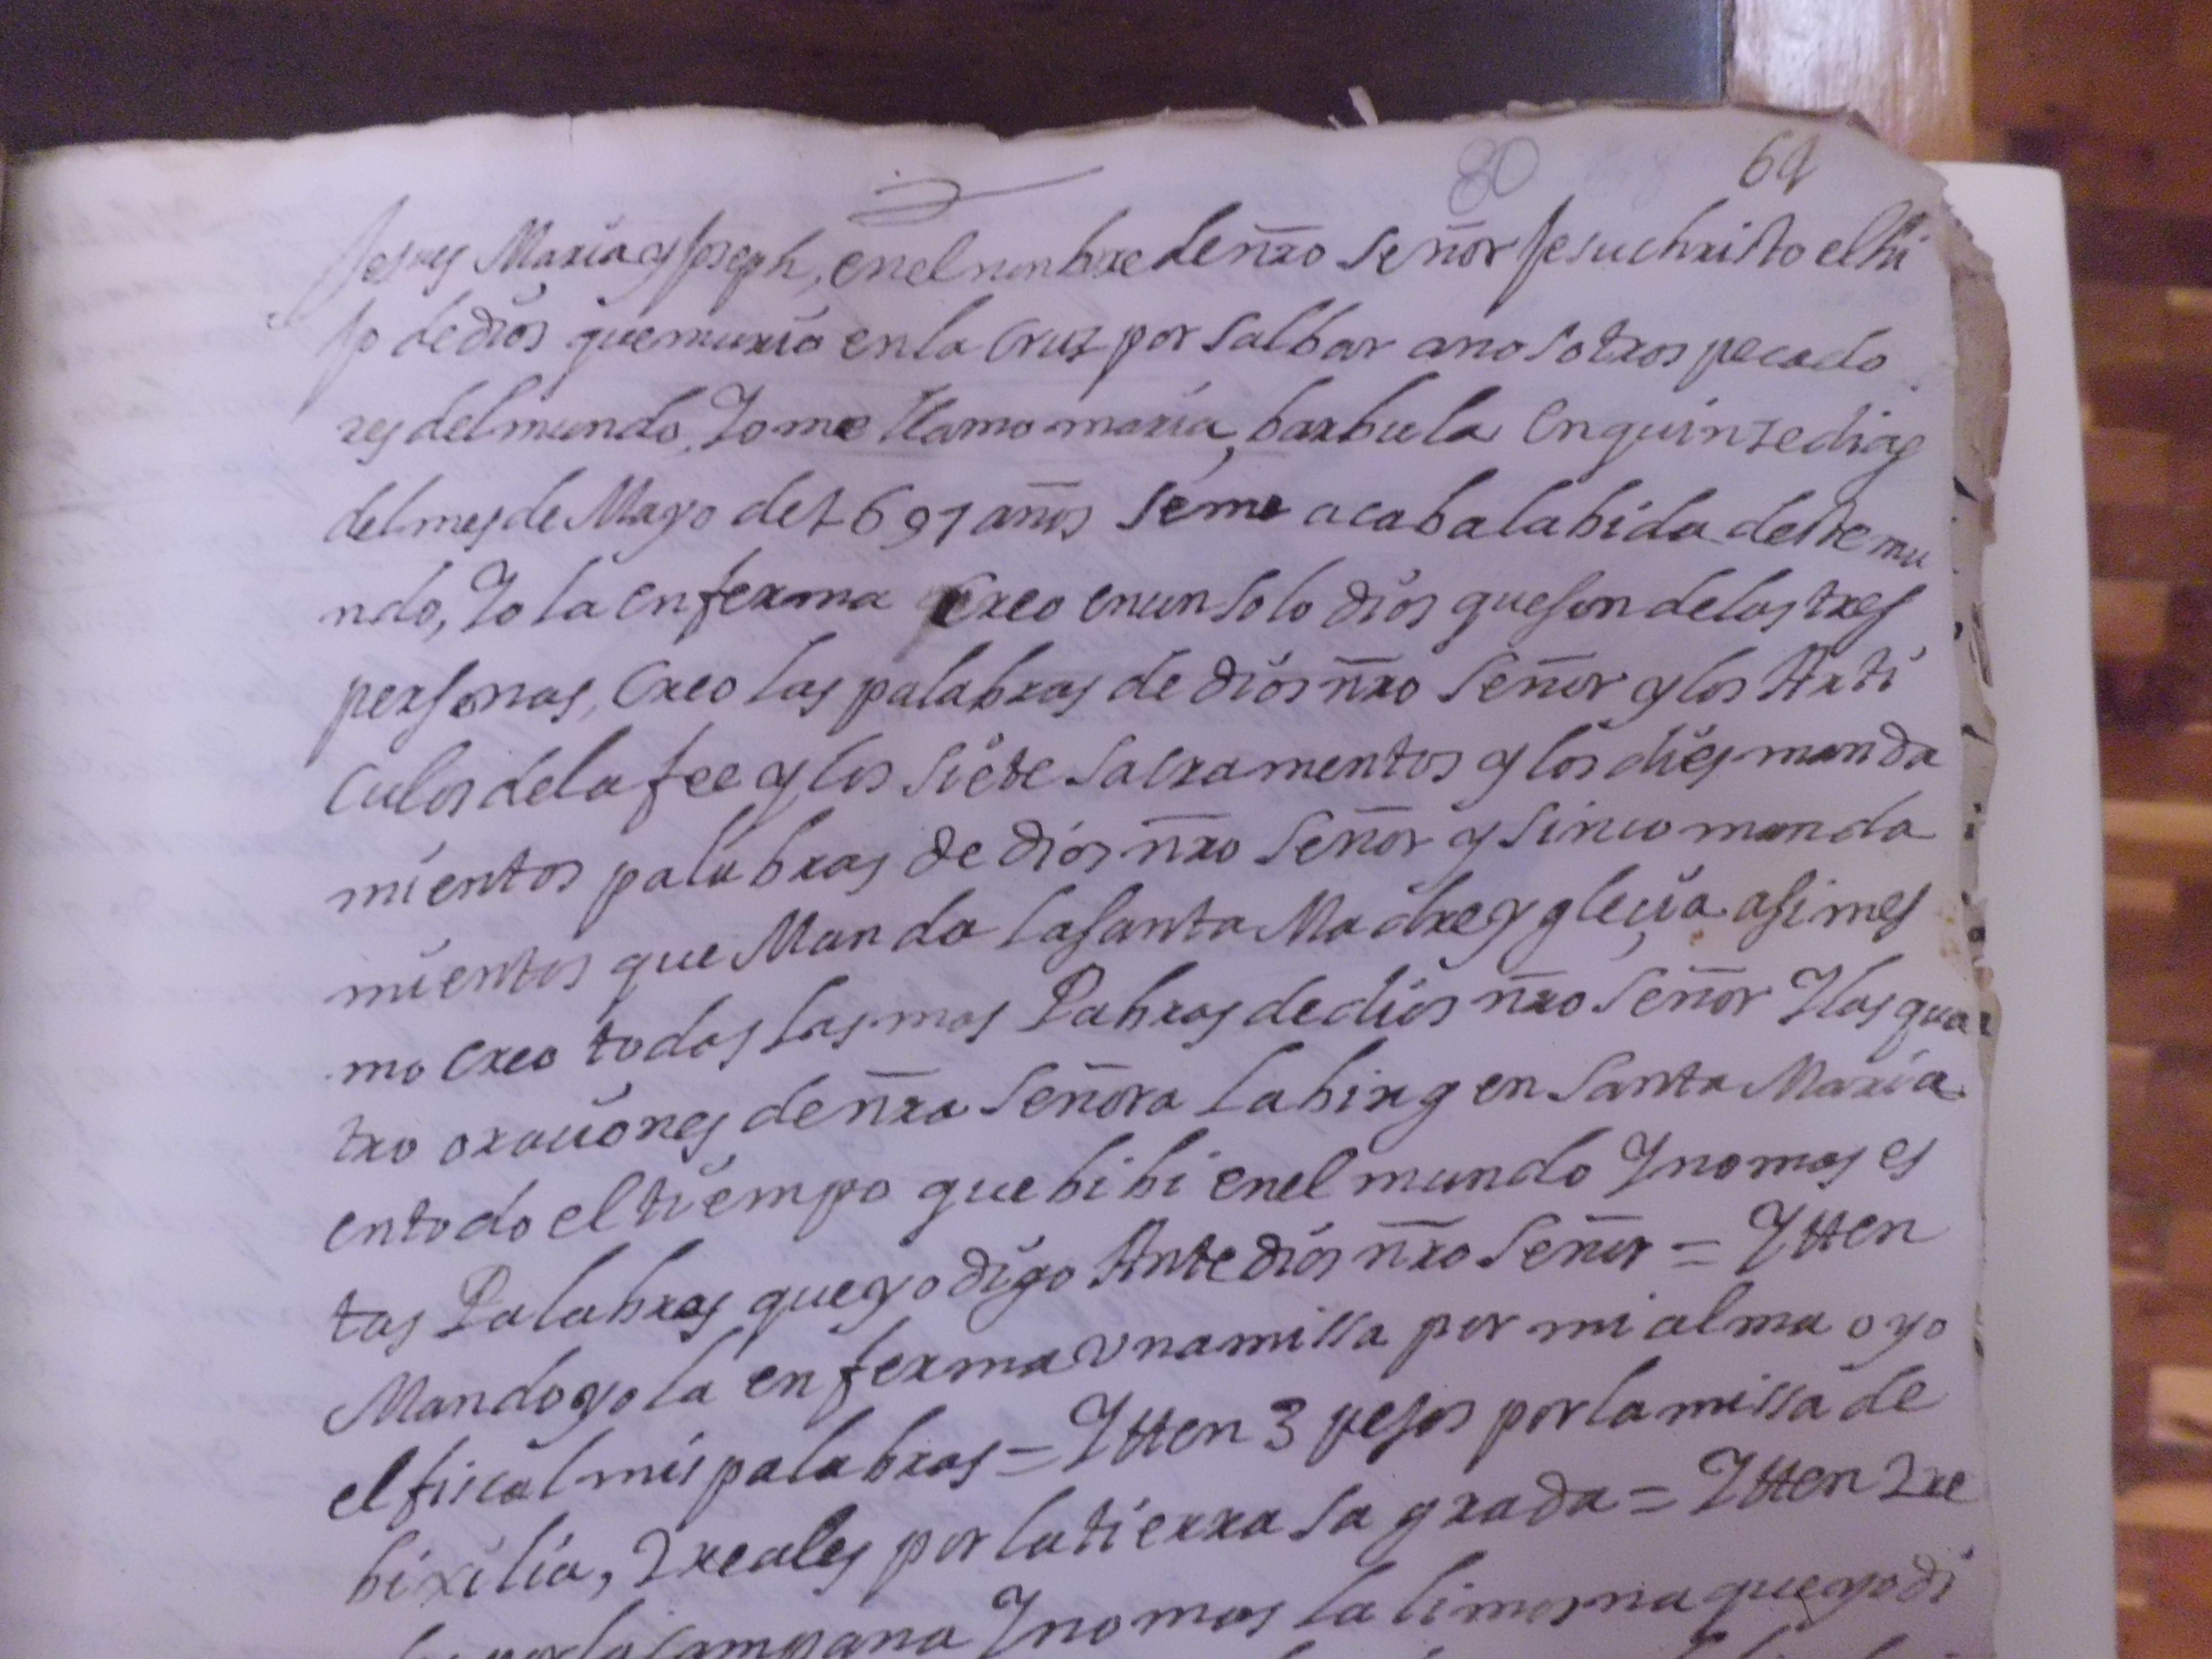 80 69
Jesus Maria y Joseph, en el nonbre de nr̃o Señor Jesuchristo el hi
jo de dios que murio en la Cruz por salbar a nosotros pecado
res del mundo, Yo me llamo maria barbula En quinse dias
del mes de Mayo de 1691 años se me acaba la bida deste mu
ndo, Yo la enferma Creo en un solo dios que son de las tres
personas, Creo las palabras de dios nr̃o Señor y los Arti
culos de la fee y los siete sacramentos y los dies manda
mientos palabras de dios nr̃o Señor y sinco manda
mientos que Manda la santa Madre ygleçia asi mes
mo Creo todas las mas Pabras de dios nr̃o Señor Y las qua
tro oraciones de nr̃a Señora la birgen Santa Maria
en todo el tiempo que bibi en el mundo Y no mas es
tas Palabras que yo digo Ante dios nr̃o Señor = Ytten
Mando yo la enferma vna missa por mi alma oyo
el fiscal mis palabras = Ytten 3 pesos por la missa de
bixilia, 2 reales por la tierra sagrada = Ytten 2 re
por la campana Y no mas la limosna que yo di